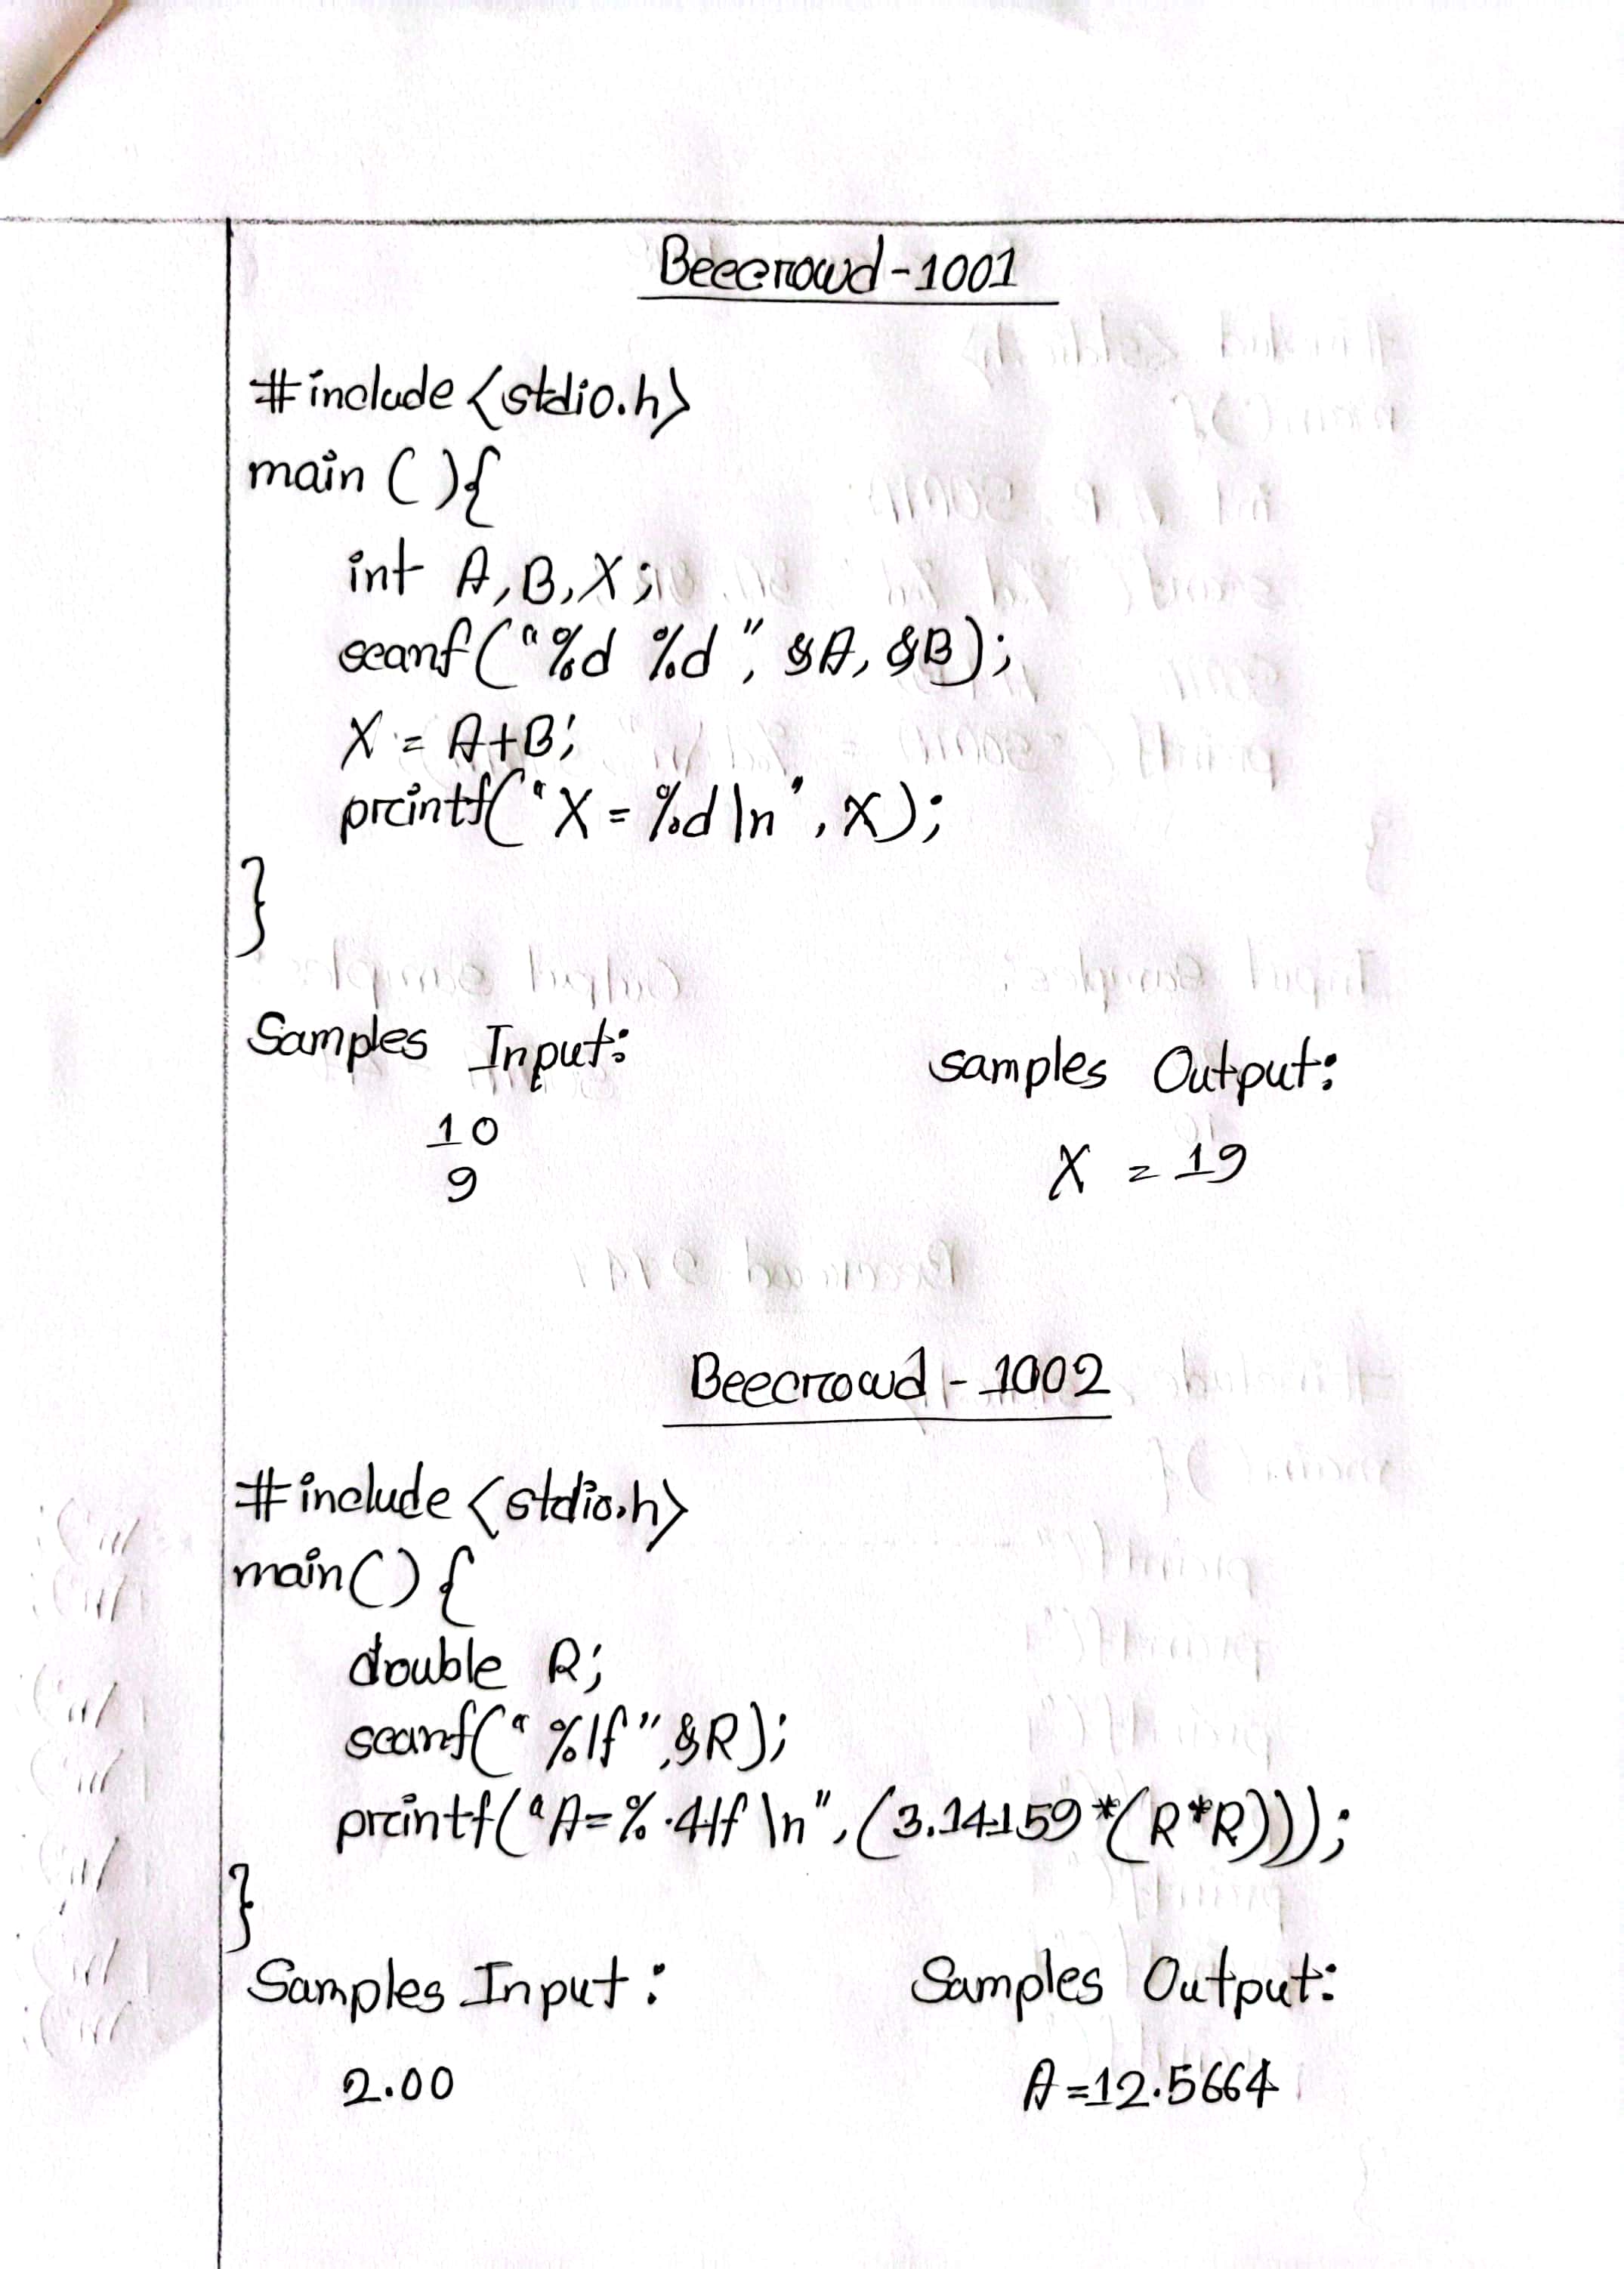 Beecrowd-1001
#include <stdio.h>
main ( ){
int A, B, X;
scanf("%d %d", &A, &B);
X = A+B;
printf("X = %d \n", X);
}
Samples Input:
samples Output:
10
9
X = 19
Beecrowd - 1002
#include <stdio.h>
main() {
double R;
scanf("%lf", &R);
printf("A=%.4lf \n", (3.14159*(R*R)));
}
Samples Input:
Samples Output:
2.00
A=12.5664